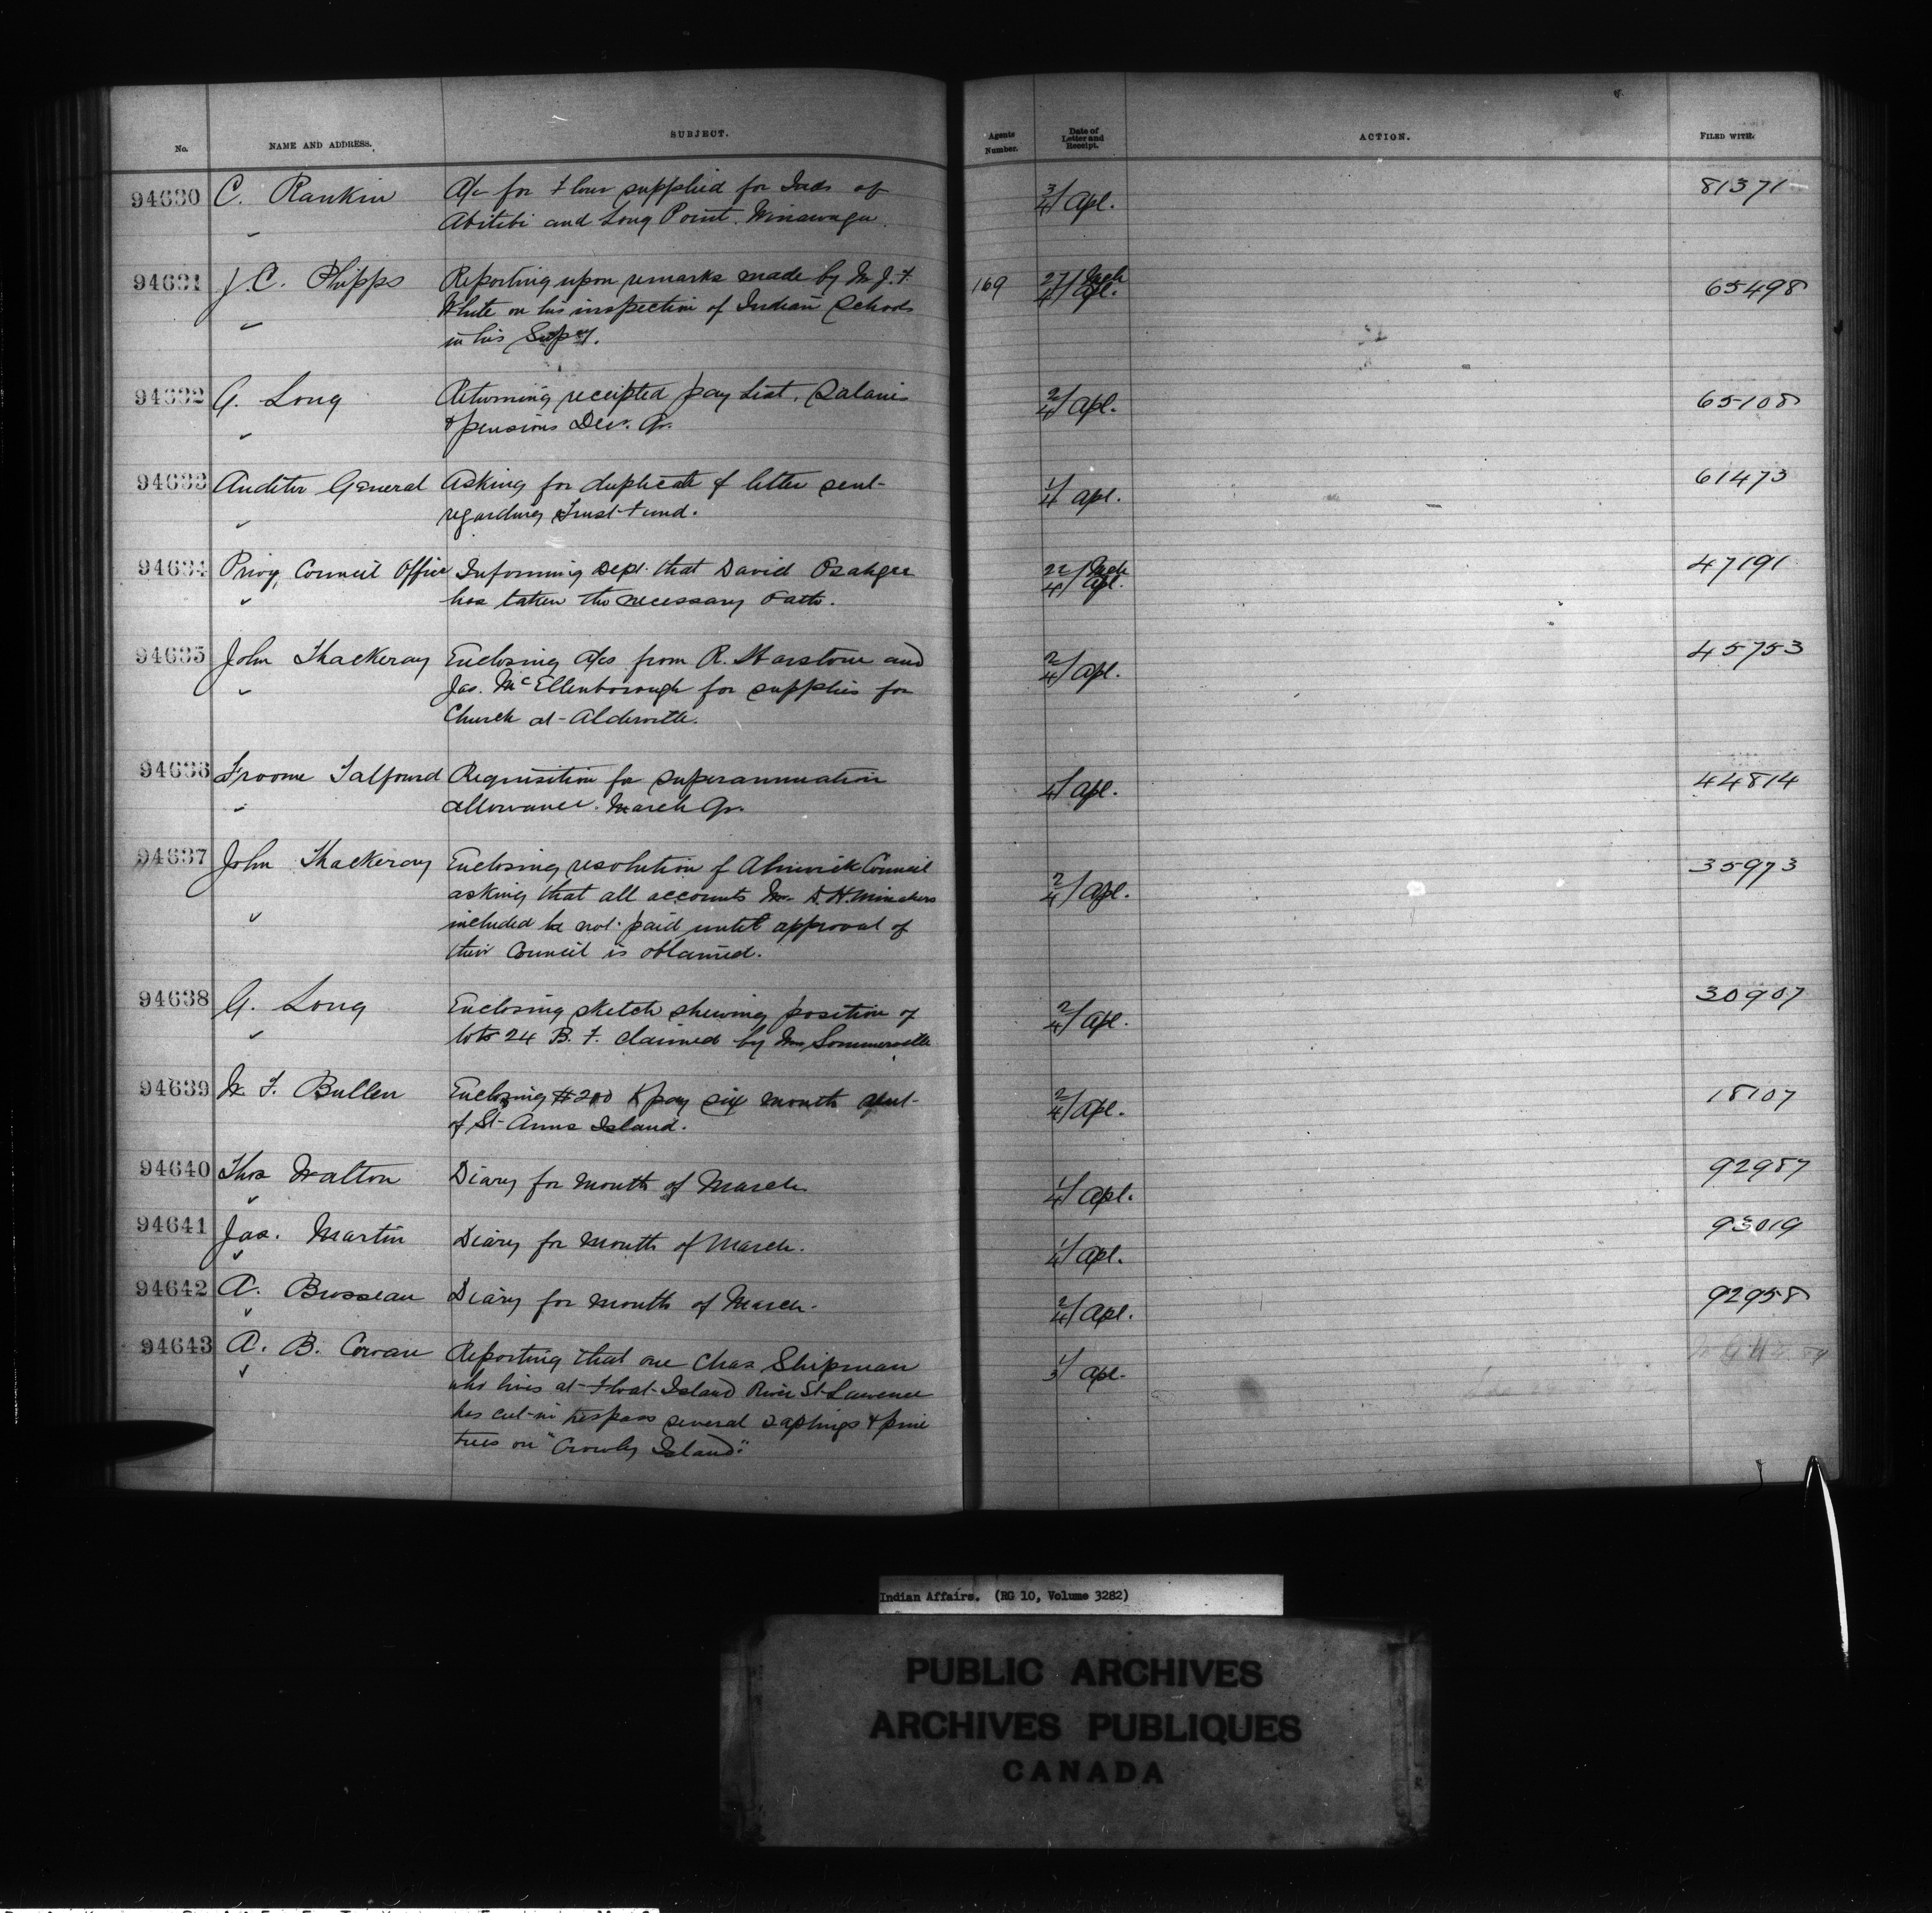 No.
NAME AND ADDRESS.
SUBJECT.
Agents Number.
Date of Letter and Receipt.
ACTION.
FILED WITH.
94630 C. Rankin A/c for Flour supplied for Inds of 3/4/ Apl. 81371
Abitibi and Long Point.
94631 J. C. Phipps Reporting upon remarks made by Mr J. F. 169 27/ Mch 4/ Apl. 65498
White on his inspection of Indian Schools
in his Supcy.
94632 A. Long Returning receipted pay list, Salaries 2/4/ Apl. 65108
& pensions Dec. Qr.
94633 Auditor General Asking for duplicate of letter sent 1/4 Apl. 61473
regarding Trust Fund.
94634 Privy Council Office Informing Dept. that David Osahgee 22/ Mch 4/ Apl. 47191
has taken the necessary Oath.
94635 John Thackeray Enclosing a/cs from R. Harstone and 2/4/ Apl. 45753
Jas. McEllenborough for supplies for
Church at Alderville.
94636 Froome Talfourd Requisition for superannuation 4/ Apl. 44814
allowance. March Qr.
94637 John Thackeray Enclosing resolution of Alnwick Council 2/4/ Apl. 35973
asking that all accounts Mr. D. H.
included be not paid until approval of
their Council is obtained.
94638 A. Long Enclosing sketch shewing position of 2/4/ Apl. 30907
lots 24 B. F. claimed by Mrs Sommerville
94639 W. F. Bullen Enclosing $200 to pay six month rent 2/4/ Apl. 18107
of St Anns Island.
94640 Thos Walton Diary for month of March 1/4/ Apl. 92987
94641 Jas. Martin Diary for month of March. 1/4/ Apl. 93019
94642 A. Brosseau Diary for month of March. 2/4/ Apl. 92958
94643 A. B. Cowan Reporting that one Chas Shipman 1/3 Apl.
who lives at Float Island River St Lawrence
has cut in trespass several saplings & pine
trees on "Crowly Island."
Indian Affairs. (RG 10, Volume 3282)
PUBLIC ARCHIVES
ARCHIVES PUBLIQUES
CANADA